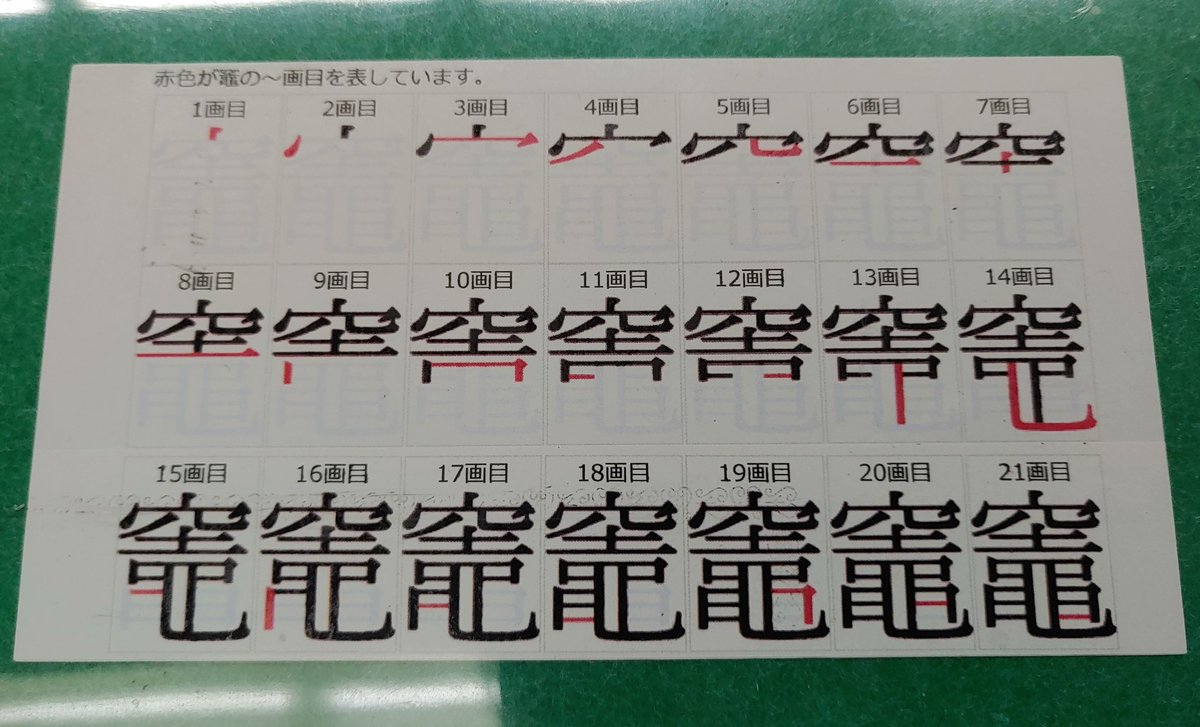 赤色が竈の～画目を表しています。
1画目 2画目 3画目 4画目 5画目 6画目 7画目
8画目 9画目 10画目 11画目 12画目 13画目 14画目
15画目 16画目 17画目 18画目 19画目 20画目 21画目
竈